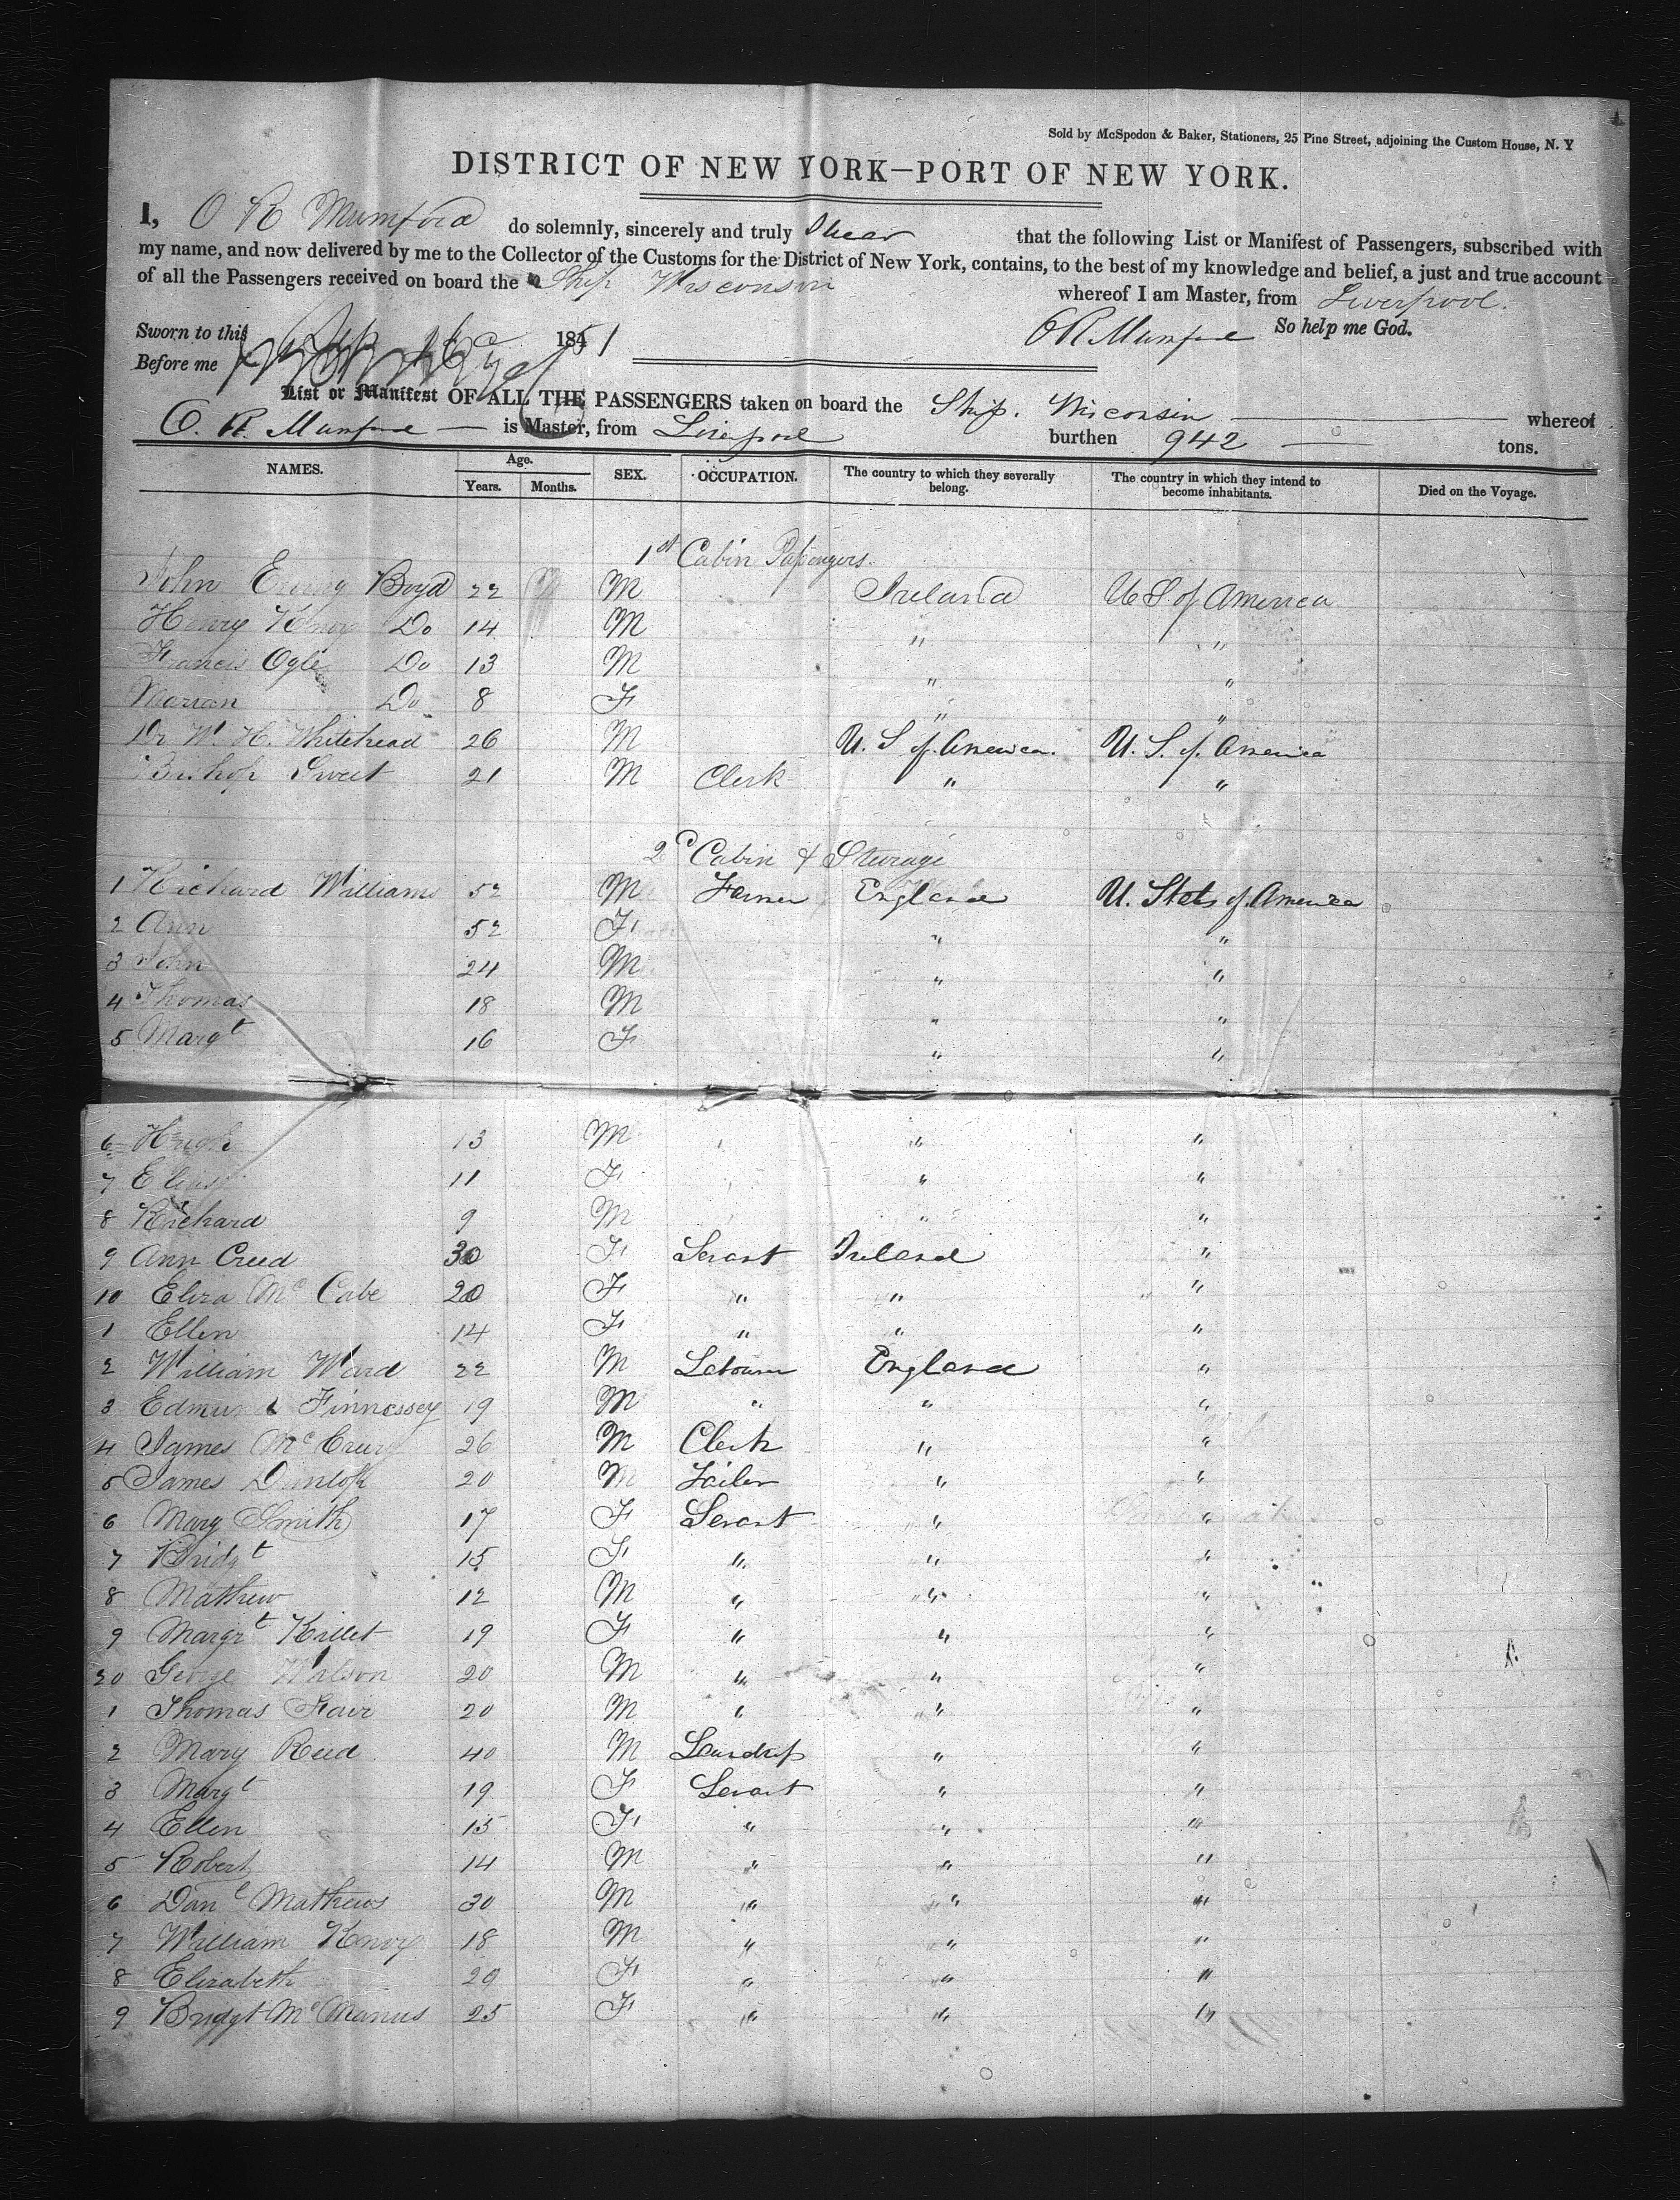 Sold by McSpedon & Baker, Stationers, 25 Pine Street, adjoining the Custom House, N. Y
DISTRICT OF NEW YORK—PORT OF NEW YORK.
I, O R Mumford do solemnly, sincerely and truly Swear that the following List or Manifest of Passengers, subscribed with
my name, and now delivered by me to the Collector of the Customs for the District of New York, contains, to the best of my knowledge and belief, a just and true account
of all the Passengers received on board the Ship Wisconsin whereof I am Master, from Liverpool.
Sworn to this 1851 O R Mumford So help me God.
Before me
List or Manifest OF ALL THE PASSENGERS taken on board the Ship. Wisconsin whereof
O. R. Mumford is Master, from Liverpool burthen 942 tons.
NAMES. Age. Years. Months. SEX. OCCUPATION. The country to which they severally belong. The country in which they intend to become inhabitants. Died on the Voyage.
1st Cabin Passengers.
John Boyd 22 M Ireland U S of America
Henry Do 14 M " "
Francis Ogle Do 13 M " "
Marian Do 8 F " "
Dr W. H. Whitehead 26 M U. S of America. U. S. of America
Bishop Sweet 21 M Clerk " "
2d Cabin & Sturage
1 Richard Williams 52 M Farmer England U. Stats of America
2 Ann 52 F " "
3 John 24 M " "
4 Thomas 18 M " "
5 Margt 16 F " "
6 Hugh 13 M " "
7 11 F " "
8 Richard 9 M " "
9 Ann Creed 30 F Servant Ireland "
10 Eliza Mc Cabe 20 F " " "
1 Ellen 14 F " " "
2 William Ward 22 M Labourer England "
3 Edmund Finnessey 19 M " " "
4 James 26 M Clerk " "
5 James Dunlop 20 M Tailor " "
6 Mary Smith 17 F Servant " "
7 Bridgt 15 F " " "
8 Mathew 12 M " " "
9 Margrt Killet 19 F " " "
20 George Watson 20 M " " "
1 Thomas Fair 20 M " " "
2 Mary Reed 40 M " "
3 Margt 19 F Servant " "
4 Ellen 15 F " " "
5 Robert 14 M " " "
6 Danl Mathews 30 M " " "
7 William Knox 18 M " " "
8 Elizabeth 20 F " " "
9 Bridgt McManus 25 F " " "